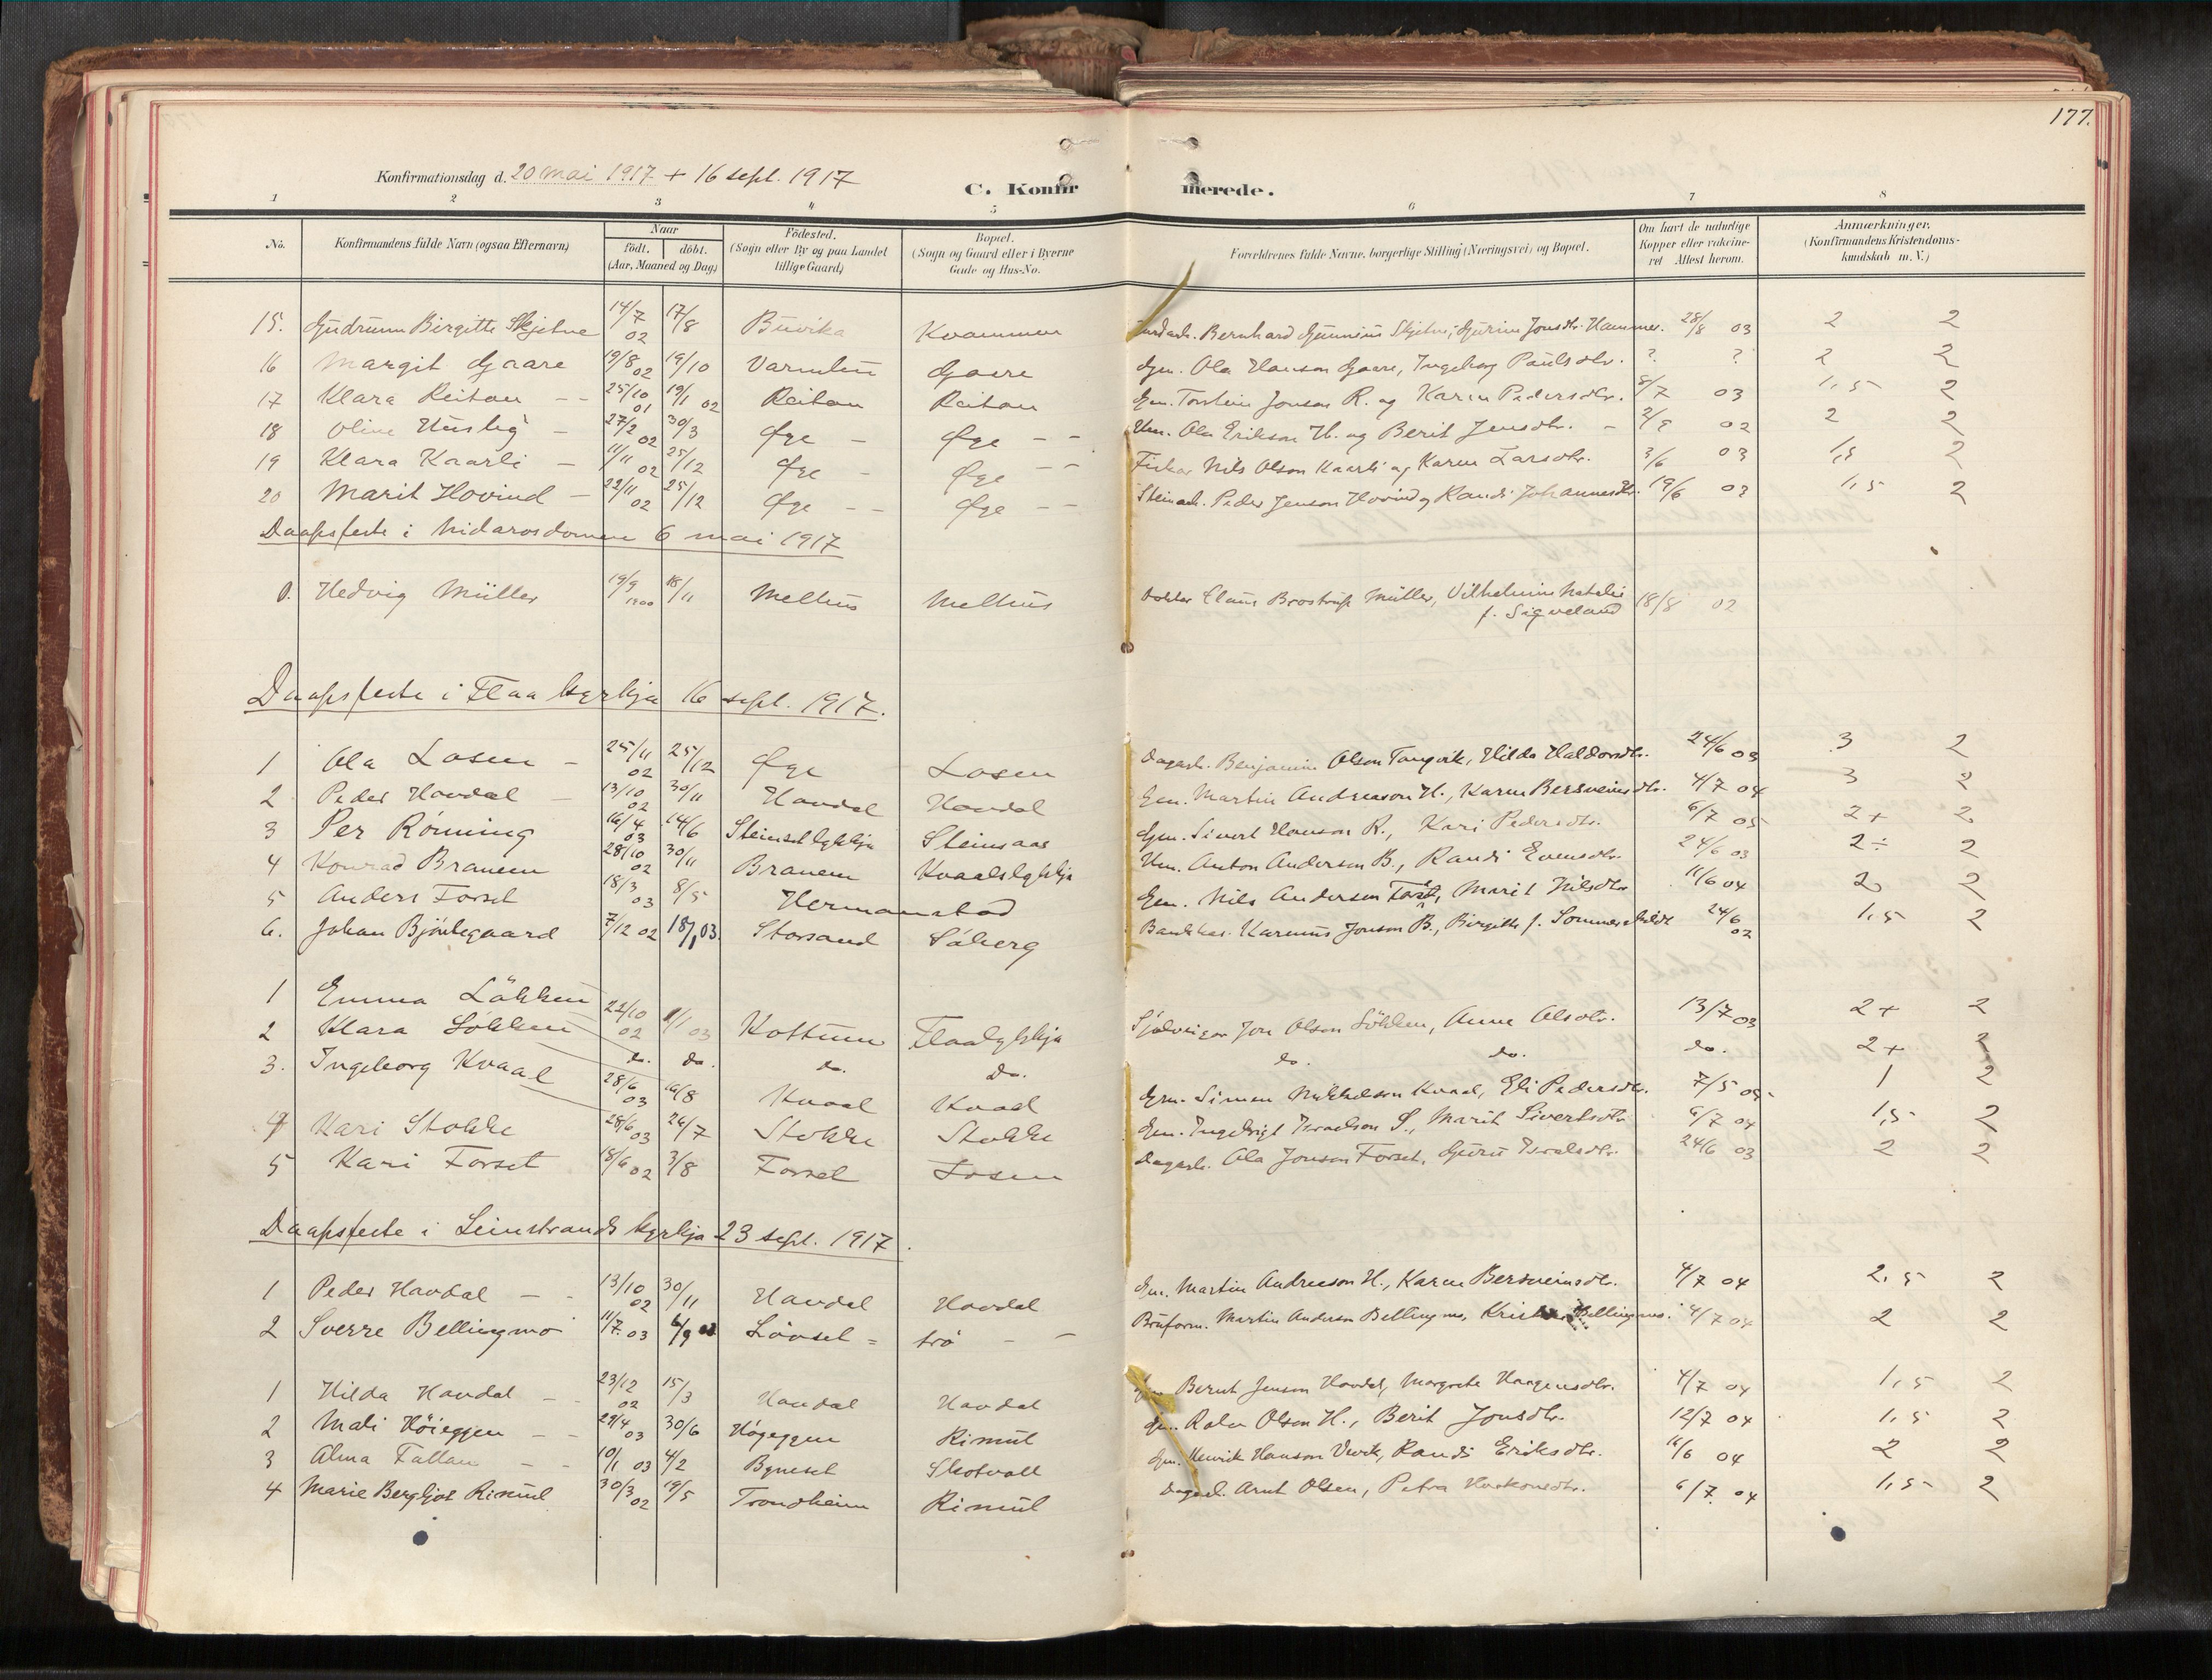 177.
Konfirmationsdag d. 20 mai 1917 + 16 sept. 1917
C. Konfirmerede.
1 2 3 4 5 6 7 8
No. Konfirmandens fulde Navn (ogsaa Efternavn) Naar født. døbt. (Aar, Maaned og Dag.) Födested. (Sogn eller By og paa Landet tillige Gaard.) Bopæl. (Sogn og Gaard eller i Byerne Gade og Hus-No. Forældrenes fulde Navne, borgerlige Stilling (Næringsvei) og Bopæl. Om havt de naturlige Kopper eller vaccineret Attest herom. Anmærkninger. (Konfirmandens Kristendomskundskab m. V.)
15. Gudrunn Birgitte Skjetne 14/7 02 17/8 Buvika Kvammen Bernhard Skjetne, Guruie Jonsdtr. Hammer. 28/8 03 2 2
16 Margit Gaare 19/8 02 19/10 Gaare Gm. Ola Hanson Gaare, Ingeborg Paulsdtr. ? ? 2 2
17 Klara Reitan - - 25/10 01 19/1 02 Reitan Reitan Gm. Torstein Jonson R. og Karen Pedersdtr. 8/7 03 1,5 2
18 Oline Husby - 27/2 02 30/3 Øye - Øye - - Um. Ola Erikson H. og Berit Jensdtr. - 2/8 02 2 2
19 Klara Kaarli - 11/11 02 25/12 Øye - Øye - - Fisker Nils Olson Kaarli og Karen Larsdtr. 3/6 03 1,5 2
20 Marit Hovind - 22/11 02 25/12 Øye - - Øye - - Steinarb. Peder Jenson Hovind og Randi Johannesdtr. 19/6 03 1,5 2
Daapsfeste i Nidarosdomen 6 mai 1917
1. Hedvig Müller 19/9 1900 18/11 Melhus Melhus Doktor Claus Brostrup Müller, Vilhelmine Natalie f. Sigveland 18/8 02
Daapsfeste i Flaa kyrkja 16 sept. 1917.
1 Ola Losen - 25/11 02 25/12 Øye Losen Dagarb. Benjamin Olson Tangvik, Hilda Haldorsdtr. 24/6 03 3 2
2 Peder Havdal - 13/10 02 30/11 Havdal Havdal Gm. Martin Andreason H., Karen Bersveinsdtr. 4/7 04 3 2
3 Per Rönning 16/4 03 14/6 Steinsaas Gm. Sivert Hanson R., Kari Pedersdtr. 6/7 05 2+ 2
4 Konrad Branem 28/10 02 30/11 Branem Kvaalslykkja Um. Anton Anderson B., Randi Evensdtr. 24/6 03 2÷ 2
5 Anders Forset 18/3 03 8/5 Hermanstad Gm. Nils Anderson Forset, Marit Nilsdtr 11/6 04 2 2
6. Johan Björkegaard 7/12 02 18/1 03. Storsand Söberg Bankkas. Karenus Jonson B., Birgitte f. Sommerschildt 24/6 02 1,5 2
1 Emma Lökken 22/10 02 1/1 03 Kottum Flaalykkja Sjölveigar Jon Olson Lökken, Anne Olsdtr. 13/7 03 2+ 2
2 Klara Lökken do. do. do. do. do. do. do. 2+ 2
3. Ingeborg Kvaal 28/6 03 16/8 Kvaal Kvaal Gm. Simen Mikkelson Kvaal, Eli Pedersdtr. 7/5 05 1 2
4 Kari Stokke 28/6 03 26/7 Stokke Stokke Gm. Ingebrigt Israelson S., Marit Sivertsdtr 6/7 04 1,5 2
5 Kari Forset 18/6 02 3/8 Forset Losen Dagarb. Ola Jonson Forset, Guru Israelsdtr. 24/6 03 2 2
Daapsfeste i Leinstrands kyrkja 23 sept. 1917.
1 Peder Havdal - - 13/10 02 30/11 Havdal Havdal Gm. Martin Andreeson H., Karen Bersveinsdtr. 4/7 04 2,5 2
2 Sverre Bellingmo 11/7. 03 6/9 Lövset = trö - - Bruform. Martin Anderson Bellingmo, Bellingmo. 4/7 04 2 2
1 Hilda Havdal - - 23/12 02 15/3 Havdal Havdal Gm. Bernt Jenson Havdal, Margrete Haagensdtr. 4/7 04 1,5 2
2 Mali Höieggen - - 29/4 03 30/6 Högeggen Rimul Gm. Olson H., Berit Jonsdtr. 12/7 04 1,5 2
3 Alma Fallan - - 10/1 03 4/2 Bynesel Skotvoll Gm. Henrik Hanson, Randi Eriksdtr. 11/6 04 2 2
4 Marie Bergljot Rimul 30/3 02 19/5 Trondheim Rimul Dagarb. Arnt Olsen, Petra Haakonsdtr. 6/7. 04 1,5 2